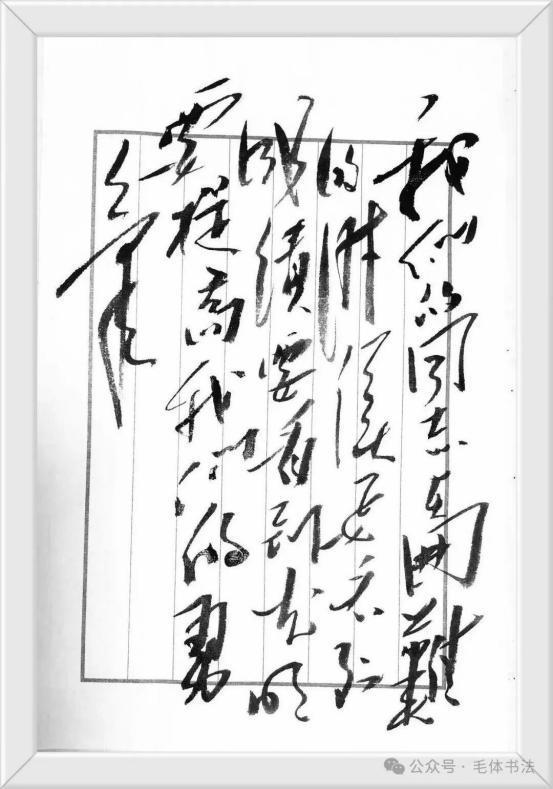 我们的同志在困難
的时候要看到
成績要看到光明
要提高我们的勇
氣
公众号 · 毛体书法